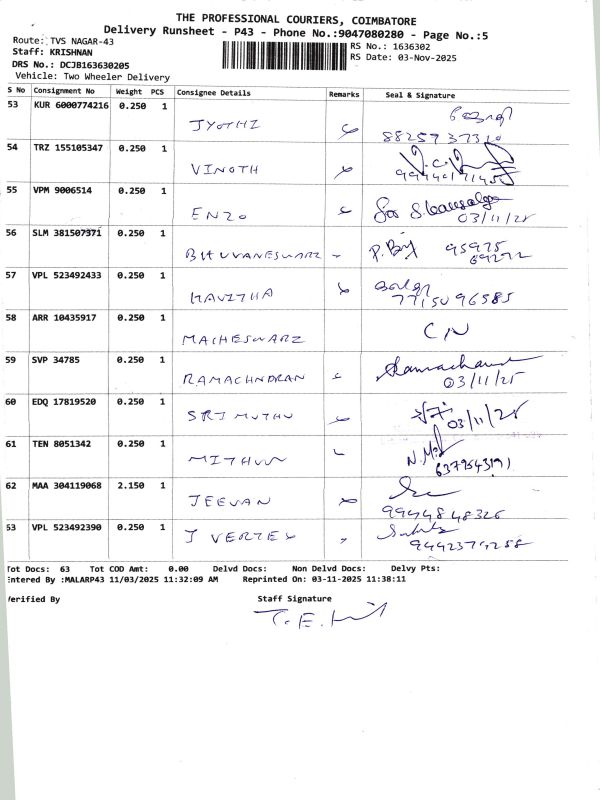 THE PROFESSIONAL COURIERS, COIMBATORE
Delivery Runsheet - P43 - Phone No.:9047080280 - Page No.:5
Route: TVS NAGAR-43
RS No.: 1636302
Staff: KRISHNAN
RS Date: 03-Nov-2025
DRS No.: DCJB163630205
Vehicle: Two Wheeler Delivery
S No Consignment No Weight PCS Consignee Details Remarks Seal & Signature
53 KUR 6000774216 0.250 1
JYOTHI 88259 37310
54 TRZ 155105347 0.250 1
VINOTH
55 VPM 9006514 0.250 1
ENZO 03/11/25
56 SLM 381507371 0.250 1
BHUVANESWARI 95975
69272
57 VPL 523492433 0.250 1
KAVITHA 77150 96585
58 ARR 10435917 0.250 1
MAHESWARI CN
59 SVP 34785 0.250 1
RAMACHNDRAN Ramachan
03/11/25
60 EDQ 17819520 0.250 1
SRI MUTHU 03/11/25
61 TEN 8051342 0.250 1
MITHUN
6379543191
62 MAA 304119068 2.150 1
JEEVAN 99448 48326
63 VPL 523492390 0.250 1
J VERTEX 9442374258
Tot Docs: 63 Tot COD Amt: 0.00 Delvd Docs: Non Delvd Docs: Delvy Pts:
Entered By :MALARP43 11/03/2025 11:32:09 AM Reprinted On: 03-11-2025 11:38:11
Verified By Staff Signature